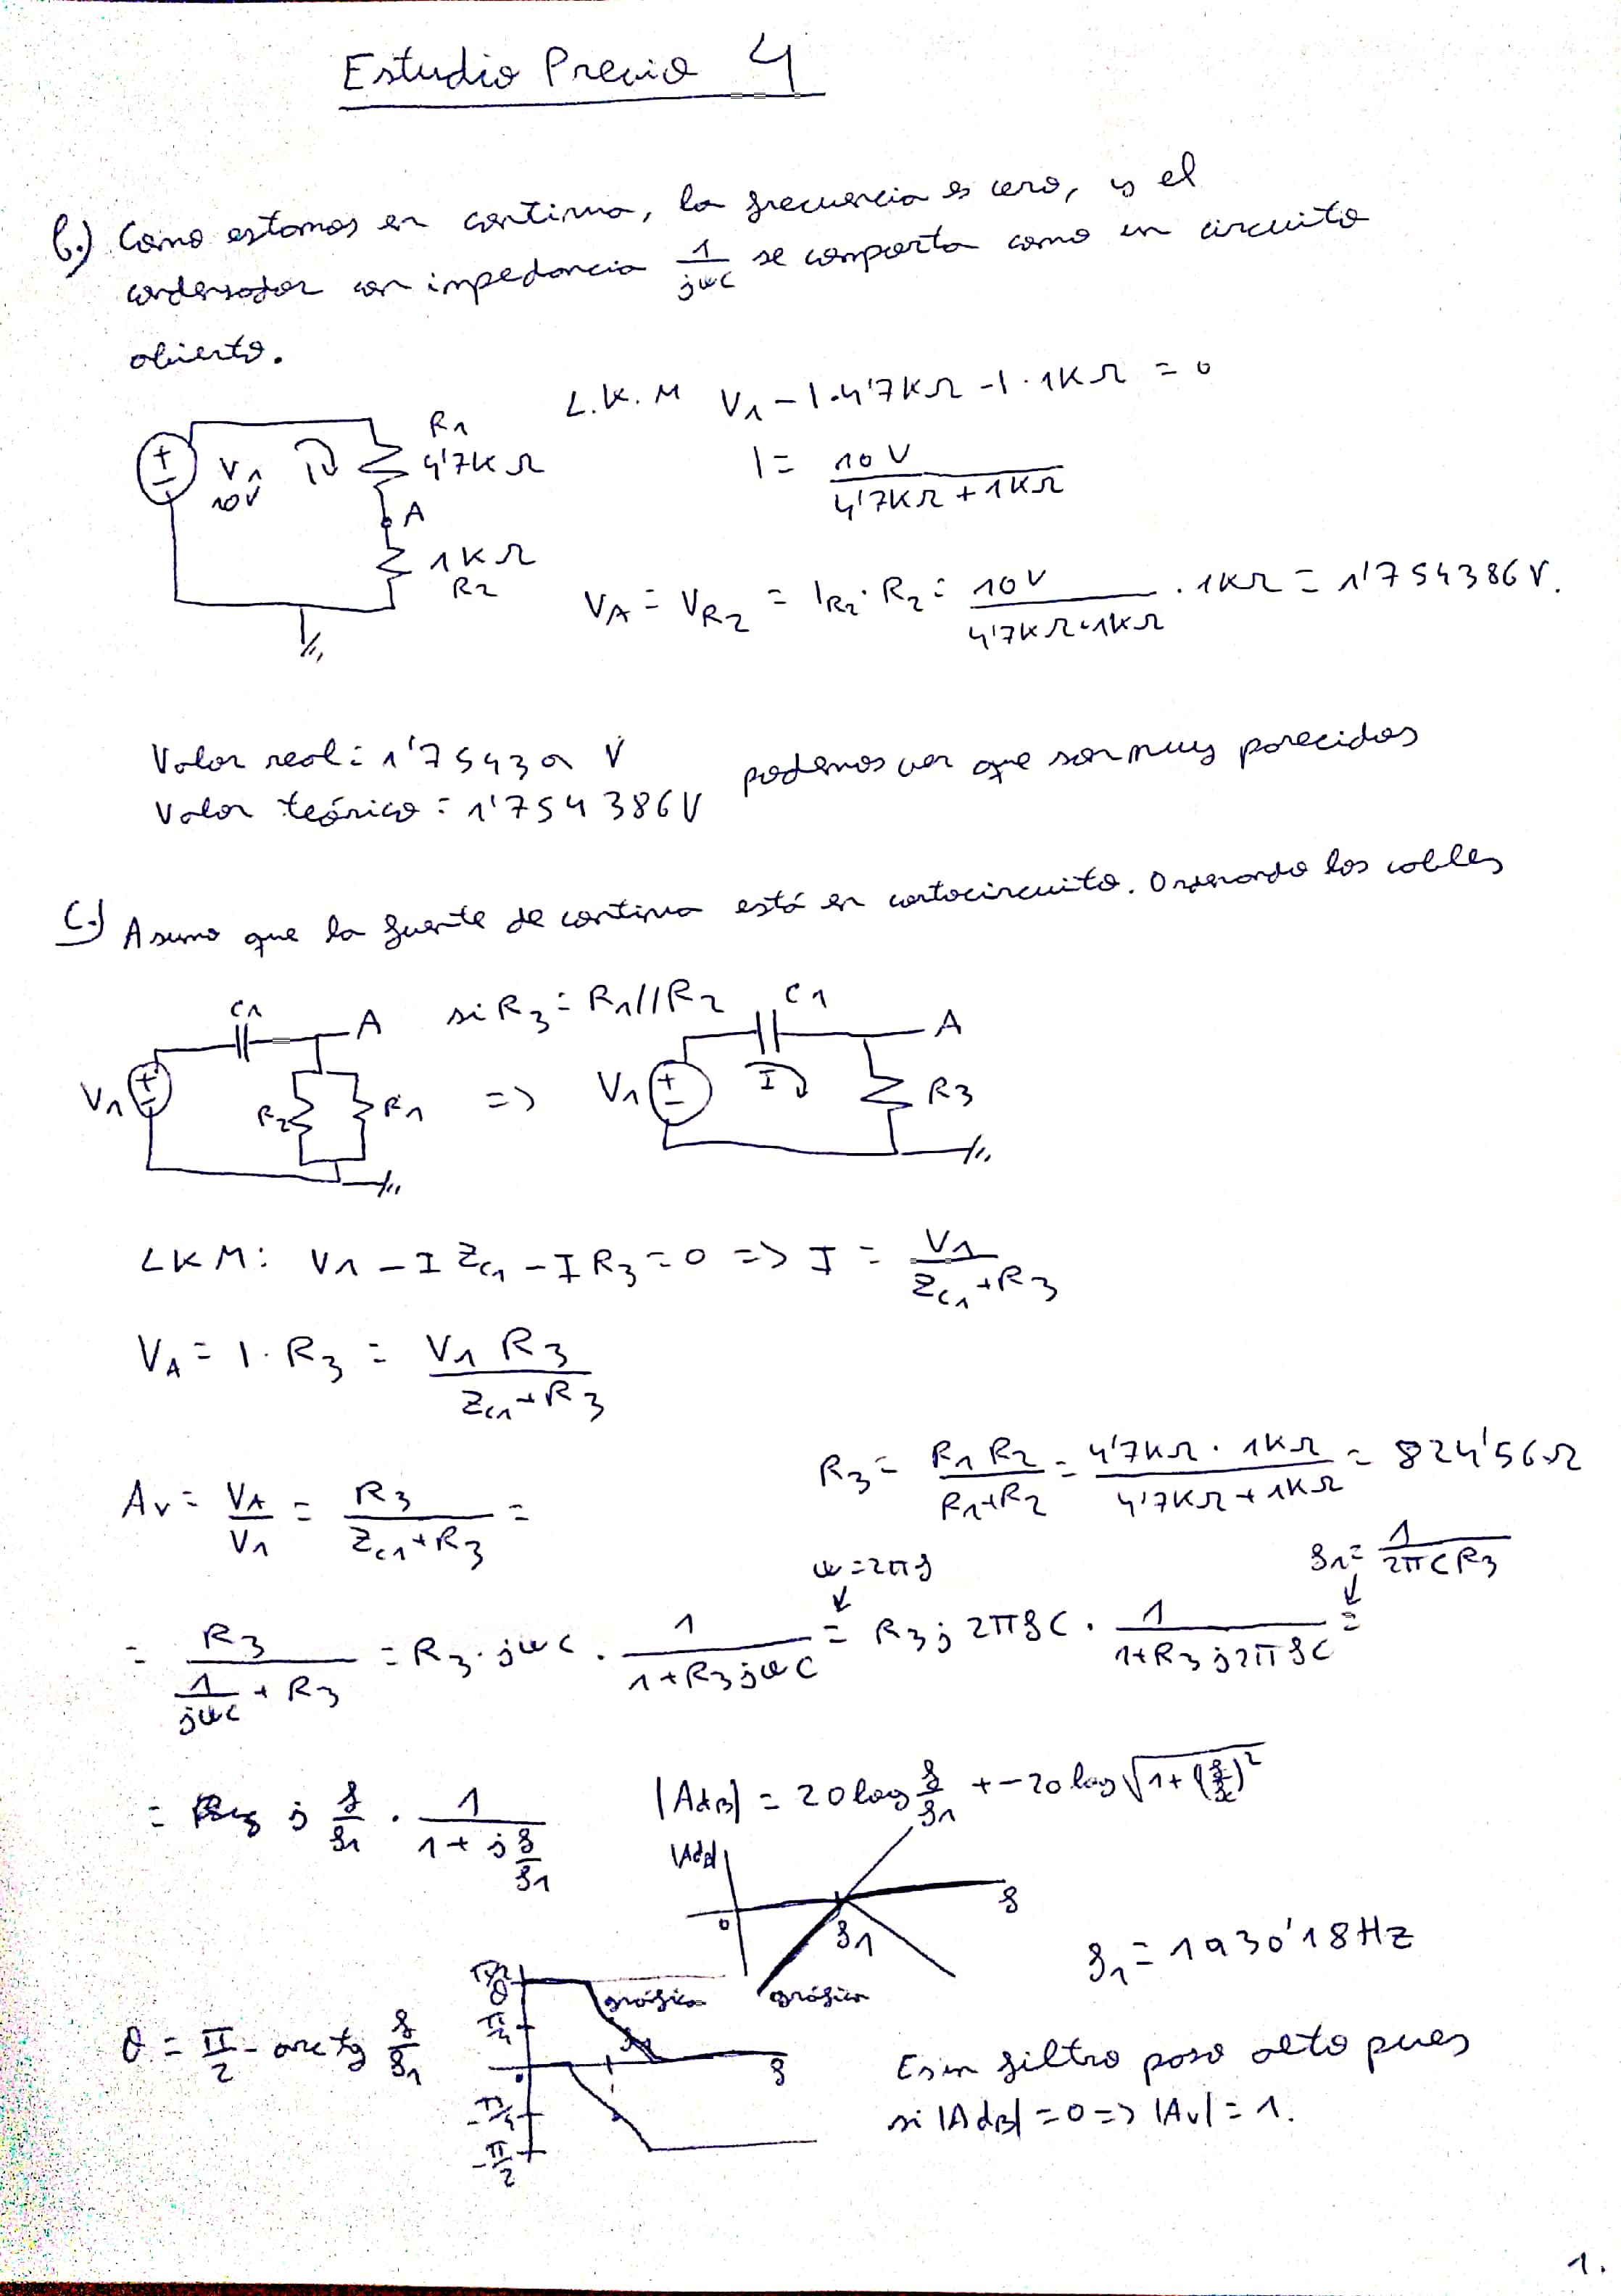 Estudio Previo 4
b.) Como estamos en continua, la frecuencia es cero, y el
condensador con impedancia 1/jωC se comporta como un circuito
abierto.
L.K.M V1 - I·4'7KΩ - I·1KΩ = 0
R1
4'7KΩ
V1
10V
I
A
1KΩ
R2
I = 10V / (4'7KΩ + 1KΩ)
VA = VR2 = IR2·R2 = 10V / (4'7KΩ+1KΩ) · 1KΩ = 1'754386V.
Valor teórico = 1'754386V
podemos ver que son muy parecidos
C.) Asumo que la fuente de continua está en cortocircuito. Ordenando los cables
C1
A
V1
R2
R1
si R3 = R1//R2
=>
C1
A
V1
I
R3
LKM: V1 - I ZC1 - I R3 = 0 => I = V1 / (ZC1 + R3)
VA = I·R3 = V1 R3 / (ZC1 + R3)
R3 = R1 R2 / (R1+R2) = 4'7KΩ · 1KΩ / (4'7KΩ + 1KΩ) = 824'56Ω
Av = VA / V1 = R3 / (ZC1 + R3) =
ω = 2πf
f1 = 1 / (2πCR3)
= R3 / (1/jωC + R3) = R3·jωC · 1 / (1+R3jωC) = R3 j 2πfC · 1 / (1+R3 j2πfC) =
= j f/f1 · 1 / (1 + j f/f1)
|AdB| = 20log f/f1 + -20log √(1+(f/f1)²)
|AdB|
0
f1
f
gráfica
f1 = 1930'18Hz
θ = π/2 - arctg f/f1
π/2
θ
π/4
-π/4
-π/2
gráfica
f1
f
Es un filtro paso alto pues
si |AdB| = 0 => |Av| = 1.
1.